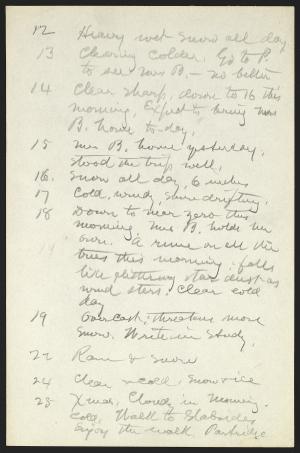 12 Heavy wet snow all day
13 Clearing colder. Go to P.
to see Mrs B. - no better
14 Clear sharp, down to 16 this
morning, Expect to bring Mrs
B. home to-day.
15 Mrs B. home yesterday,
stood the trip well.
16. Snow all day, 6 inches
17 Cold, windy, snow drifting.
18 Down to near zero this
morning. Mrs B. holds her
own. A rime on all the
trees this morning - falls
like glittering star dust as
wind stirs. Clear cold
day
19 Overcast; threatens more
snow. Write in Study.
22 Rain & snow
24 Clear & cold. Snow & ice
25 Xmas, Cloudy in morning.
cold. Walk to Slabsides
Enjoy the walk. Partridge